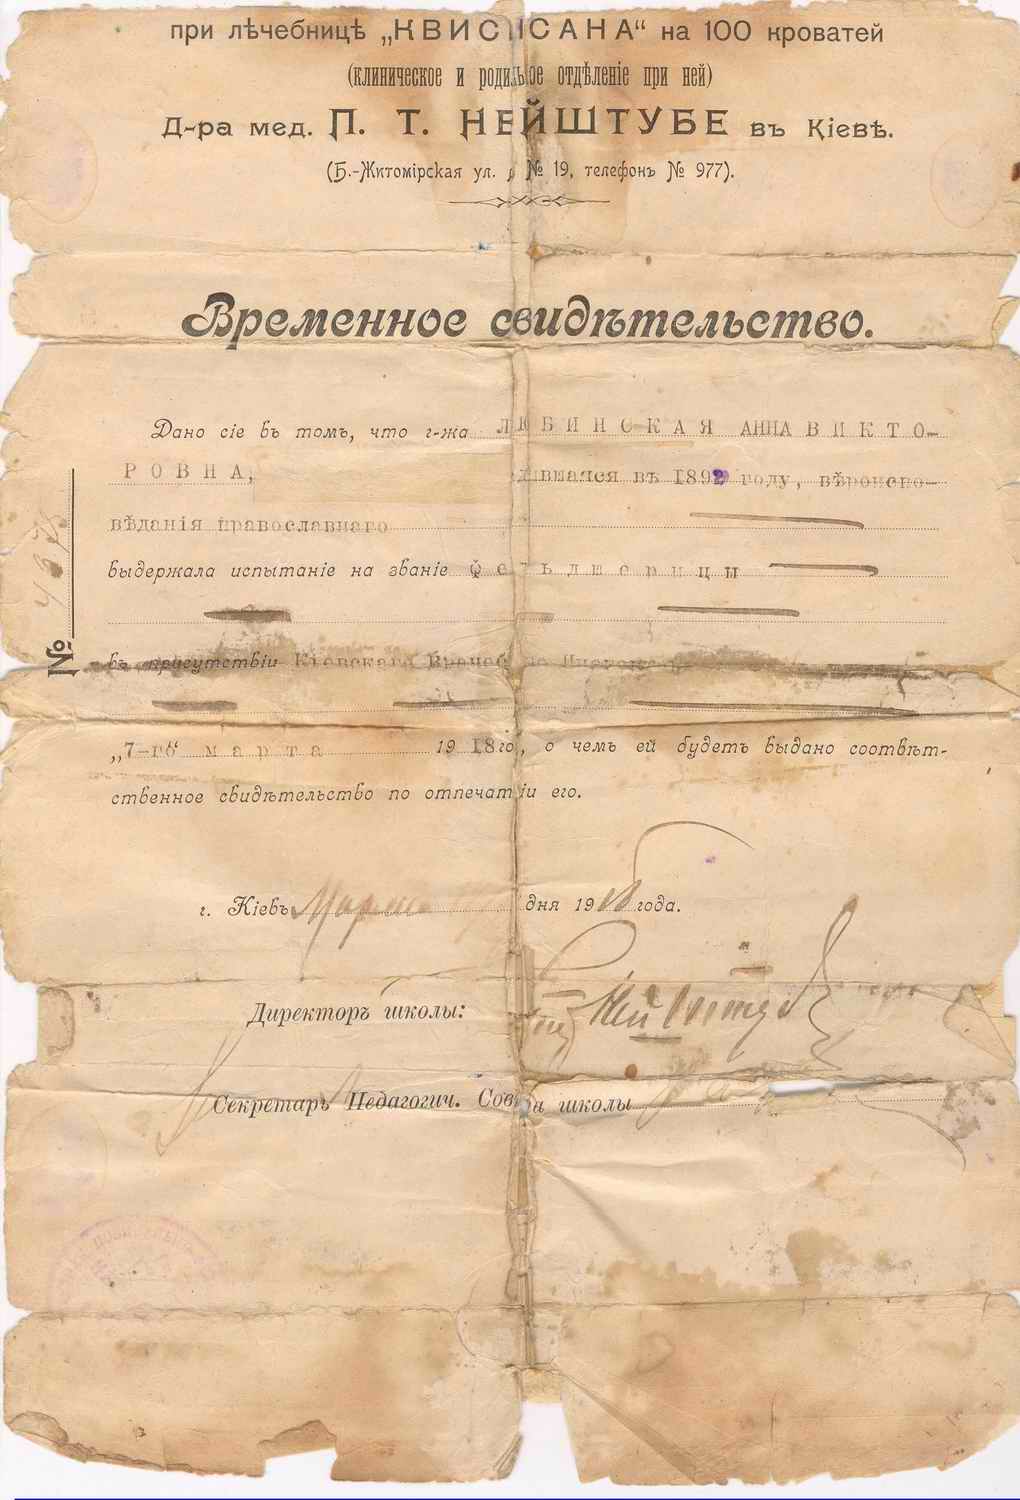 при лѣчебницѣ „КВИСИСАНА“ на 100 кроватей
(клиническое и родильное отдѣленіе при ней)
Д-ра мед. П. Т. НЕЙШТУБЕ въ Кіевѣ.
(Б.-Житомірская ул. № 19, телефонъ № 977).
Временное свидѣтельство.
Дано сіе въ томъ, что г-жа ЛЮБИНСКАЯ АННА ВИКТО-
РОВНА, дившаяся въ 1892 году, вѣроиспо-
вѣданія православнаго
выдержала испытаніе на званіе Фельдшерицы
№
въ присутствіи Кіевскаго
„7-го“ марта 1918 го, о чемъ ей будетъ выдано соотвѣт-
ственное свидѣтельство по отпечатіи его.
г. Кіевъ Марта дня 1918 года.
Директоръ школы: Нейштубе
Секретарь Педагогич. Совѣта школы